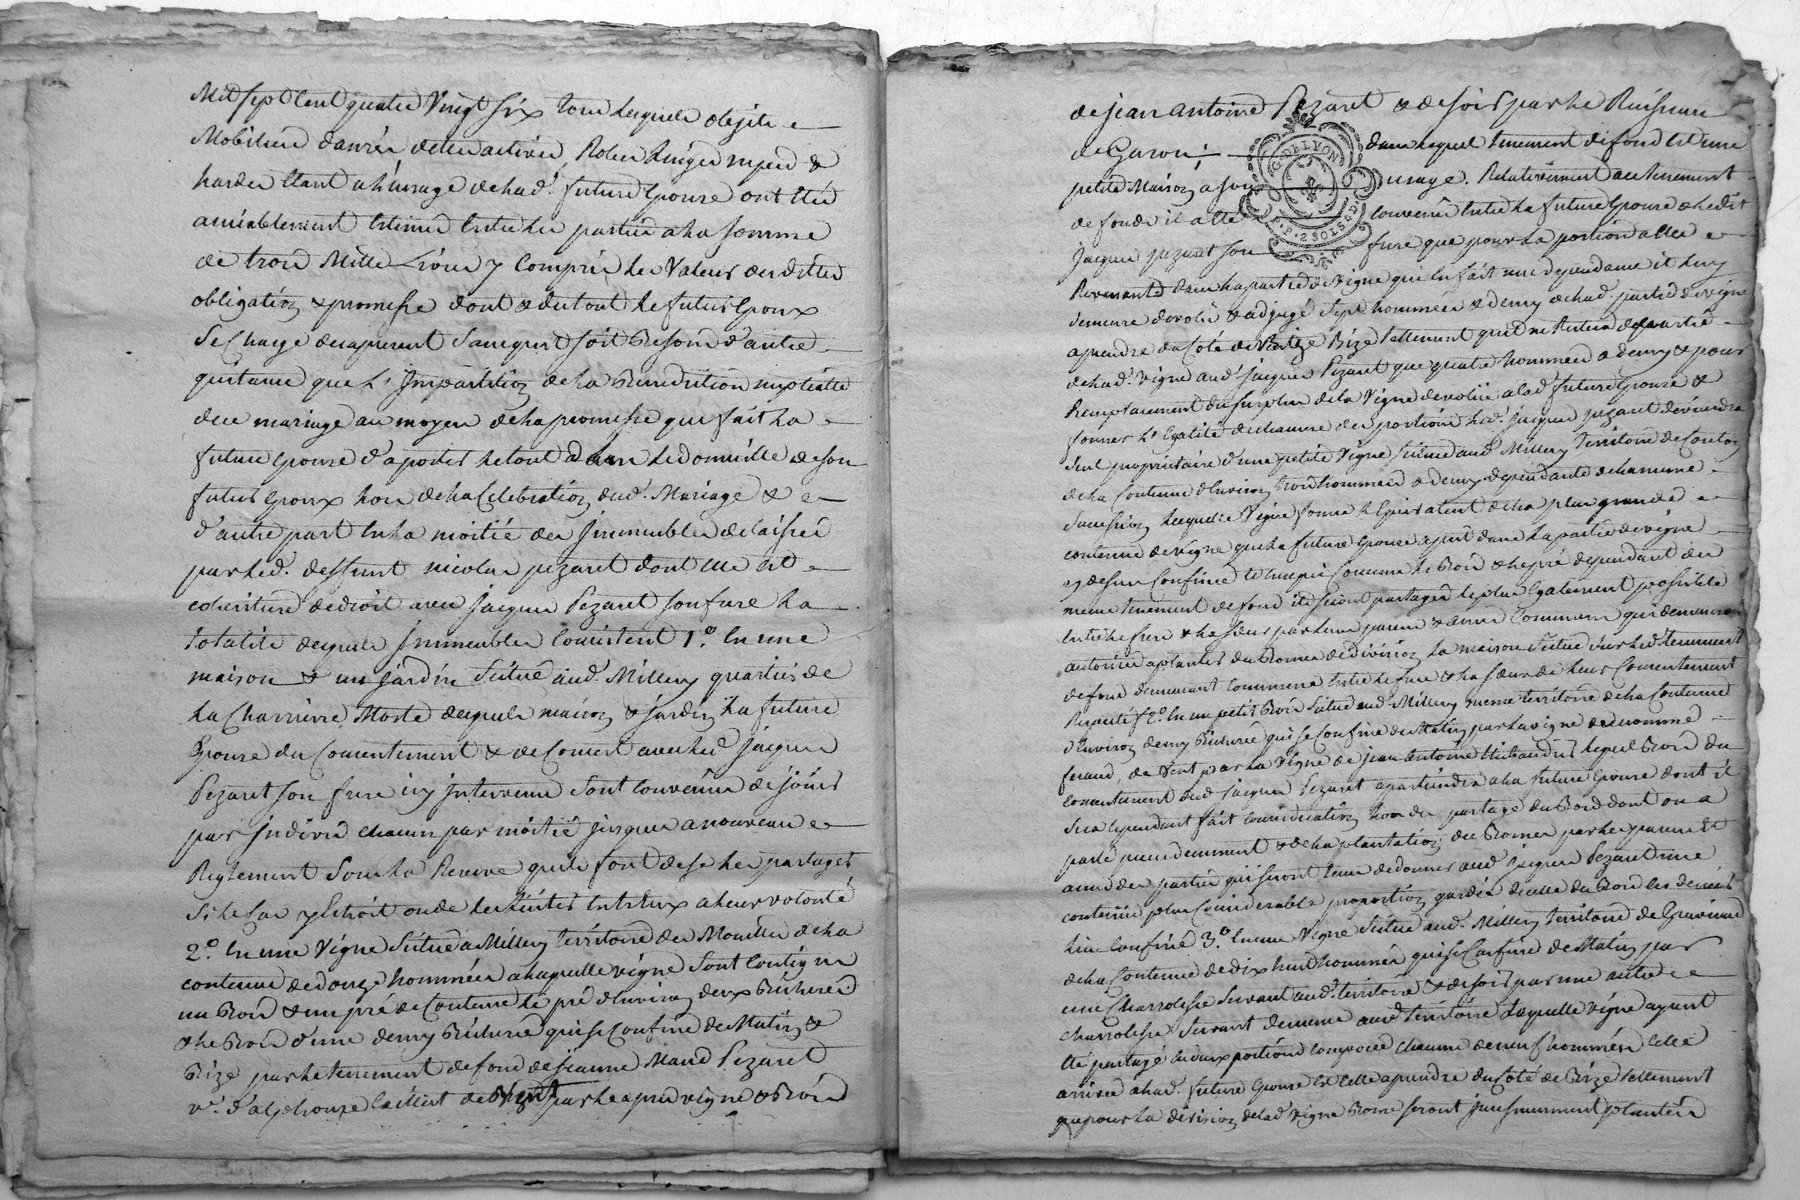 Mil sept Cent quatre Vingt Six tous lesquels objets
Mobiliers danrées dettes actives, Robes linges nipes &
hardes Etant a L'usage de lad. future Epouse ont Eté
amiablement Estimés Entre les parties a la somme
de trois Mille Livres y Compris les Valeurs desdittes
obligation & promesse dont & du tout le futur Epoux
Se Charge des apresent Sans quil soit Besoin d'autre
quittance que L'Impartition de la Benediction nuptiale
dece mariage au moyen de la promesse que fait La
future Epouse d'aporter le tout dans le domicille de son
futur Epoux lors de la Celebration dud. Mariage &
d'autre part En la moitié des Immeubles delaissés
par led. deffunt nicolas pezaret dont elle est
coheritiere de droit avec Jacques Pezaret son frere La
totalité desquels Immeubles Consistent 1.° En une
maison & un jardin Situé aud. Millery quartier de
La Charriere Morte desquels maison & jardin La future
Epouse du Consentement & de Concert avec led. Jacques
Pezaret son frere icy Intervenu Sont Convenus de jouir
par indivis chacun par moitié jusques a nouveau
Reglement Sous La Reserve quils font de se les partager
Si le Cas y Echoit ou de les liciter Entr'Eux a leur volonté
2.° En une Vigne Située a Millery territoire des Mouilles de la
contenue de douze hommées a laquelle vigne sont Contigus
un Bois & un pré de Contenue le pré d'Environ deux Bicherées
& le Bois d'une demy Bicherée qui se Confine de Matin &
Bize par le tenement de fond de jeanne Marie Pezaret
v.e d'alphonse Caillat de Vent par les apres vigne & Bois
de jean antoine Pezaret & de soir par le Ruisseau
de Garon; dans lequel tenement de fond Est une
petite Maison a son usage. Relativement au tenement
de fonds il a Eté Convenu Entre la future Epouse & ledit
Jacques pezaret son frere que pour La portion a Elle
Revenante dans la partie de Vigne qui En fait une dependance il luy
demeure devolu & adjugé Sept hommées & demy de lad. partie de vigne
a prendre du Coté de Bize tellement quil ne Restera de partie
de lad. Vigne aud. jacques Pezaret que quatre hommées & demy & pour
Remplacement du surplus de la Vigne devolue a lad. future Epouse &
former L'Egalité de chacune des portions led. jacques pezaret deviendra
seul proprietaire d'une petite Vigne Située aud. Millery territoire de
de la Contenue d'Environ trois hommées & demy dependante de la meme
Succession laquelle Vigne forme L'Equivalent de la plus grande
contenue de vigne que la future Epouse a prit dans la partie de vigne
cy dessus Confinée & Enquoi Concerne le Bois & le pré dependant du
meme tenement de fond ils seront partagés le plus Egalement possible
Entre le frere & la soeur par leurs parens & amis Communs qui demeurent
autorisés a planter des Bornes de division la maison située sur led. tenement
de fond demeurant Commune Entre le frere & la soeur de leur Consentement
Respectif 2.° En un petit Bois Situé aud. Millery meme territoire de la Contenue
d'Environ demy Bicherée qui se Confine de Matin par la vigne du nommé
feraud, de Vent par la Vigne de jean antoine Thibaudier lequel Bois du
Consentement dud. jacques Pezaret apartiendra a la future Epouse dont il
sera Cependant fait Consideration lors du partage du Bois dont on a
parlé precedemment & de la plantation des Bornes par les parens &
amis des parties qui seront tenus de donner aud. jacques Pezaret une
contenüe plus Considerable proportion gardée de celle du Bois En dernier
lieu Confiné 3.° En une Vigne Située aud. Millery territoire de Gravinand
de la Contenue de dix huit hommées qui se Confine de Matin par
une Charrolesse Servant aud. territoire & de soir par une autre
charrolesse Servant de meme aud. territoire Laquelle vigne ayant
Eté partagé En deux portions composées chacune de neuf hommées Celle
arrivée a lad. future Epouse Est Celle a prendre du Coté de Bize tellement
que pour La division de lad. vigne Bornes seront incessamment plantées
G. DE LYON
P. P. 2 SOLS 8 D